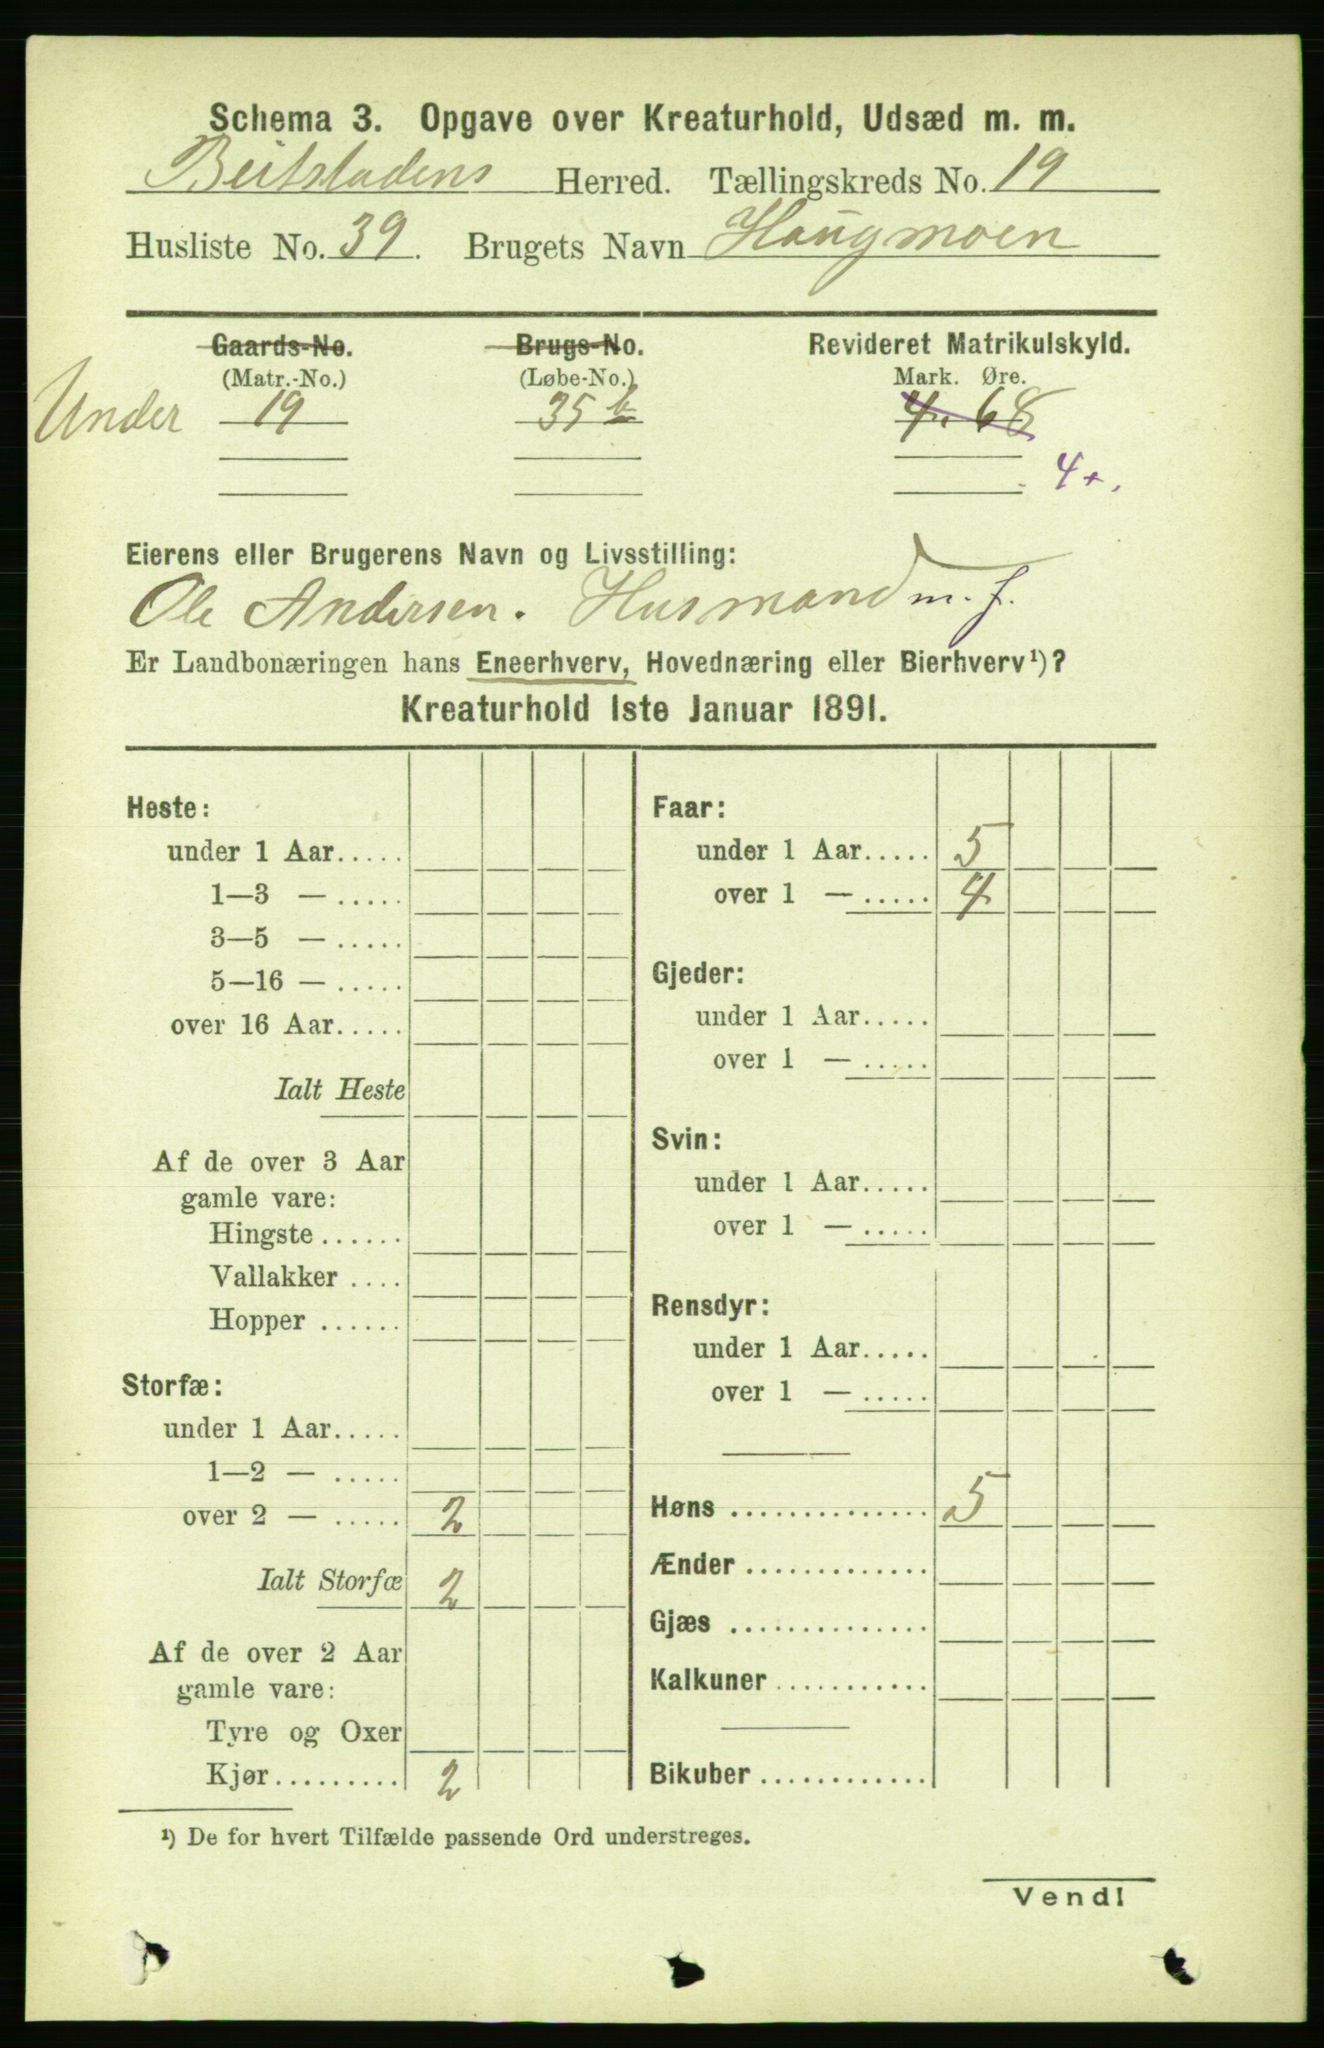 Schema 3. Opgave over Kreaturhold, Udsæd m. m.
Beitstadens Herred. Tællingskreds No. 19
Husliste No. 39. Brugets Navn Haugmoen
Gaards-No. Brugs-No. Revideret Matrikulskyld.
(Matr.-No.) (Løbe-No.) Mark. Øre.
Under 19 35 b 4. 68
4+.
Eierens eller Brugerens Navn og Livsstilling:
Ole Andersen. Husmand m. J.
Er Landbonæringen hans Eneerhverv, Hovednæring eller Bierhverv¹)?
Kreaturhold 1ste Januar 1891.
Heste:
under 1 Aar.....
1—3 — .....
3—5 — .....
5—16 — .....
over 16 Aar.....
Ialt Heste
Af de over 3 Aar
gamle vare:
Hingste ......
Vallakker ....
Hopper ......
Storfæ:
under 1 Aar.....
1—2 — .....
over 2 — ..... 2
Ialt Storfæ 2
Af de over 2 Aar
gamle vare:
Tyre og Oxer
Kjør.......... 2
Faar:
under 1 Aar..... 5
over 1 — ..... 4
Gjeder:
under 1 Aar.....
over 1 — .....
Svin:
under 1 Aar.....
over 1 — .....
Rensdyr:
under 1 Aar.....
over 1 — .....
Høns .............. 5
Ænder .............
Gjæs ..............
Kalkuner ...........
Bikuber ............
¹) De for hvert Tilfælde passende Ord understreges.
Vend!